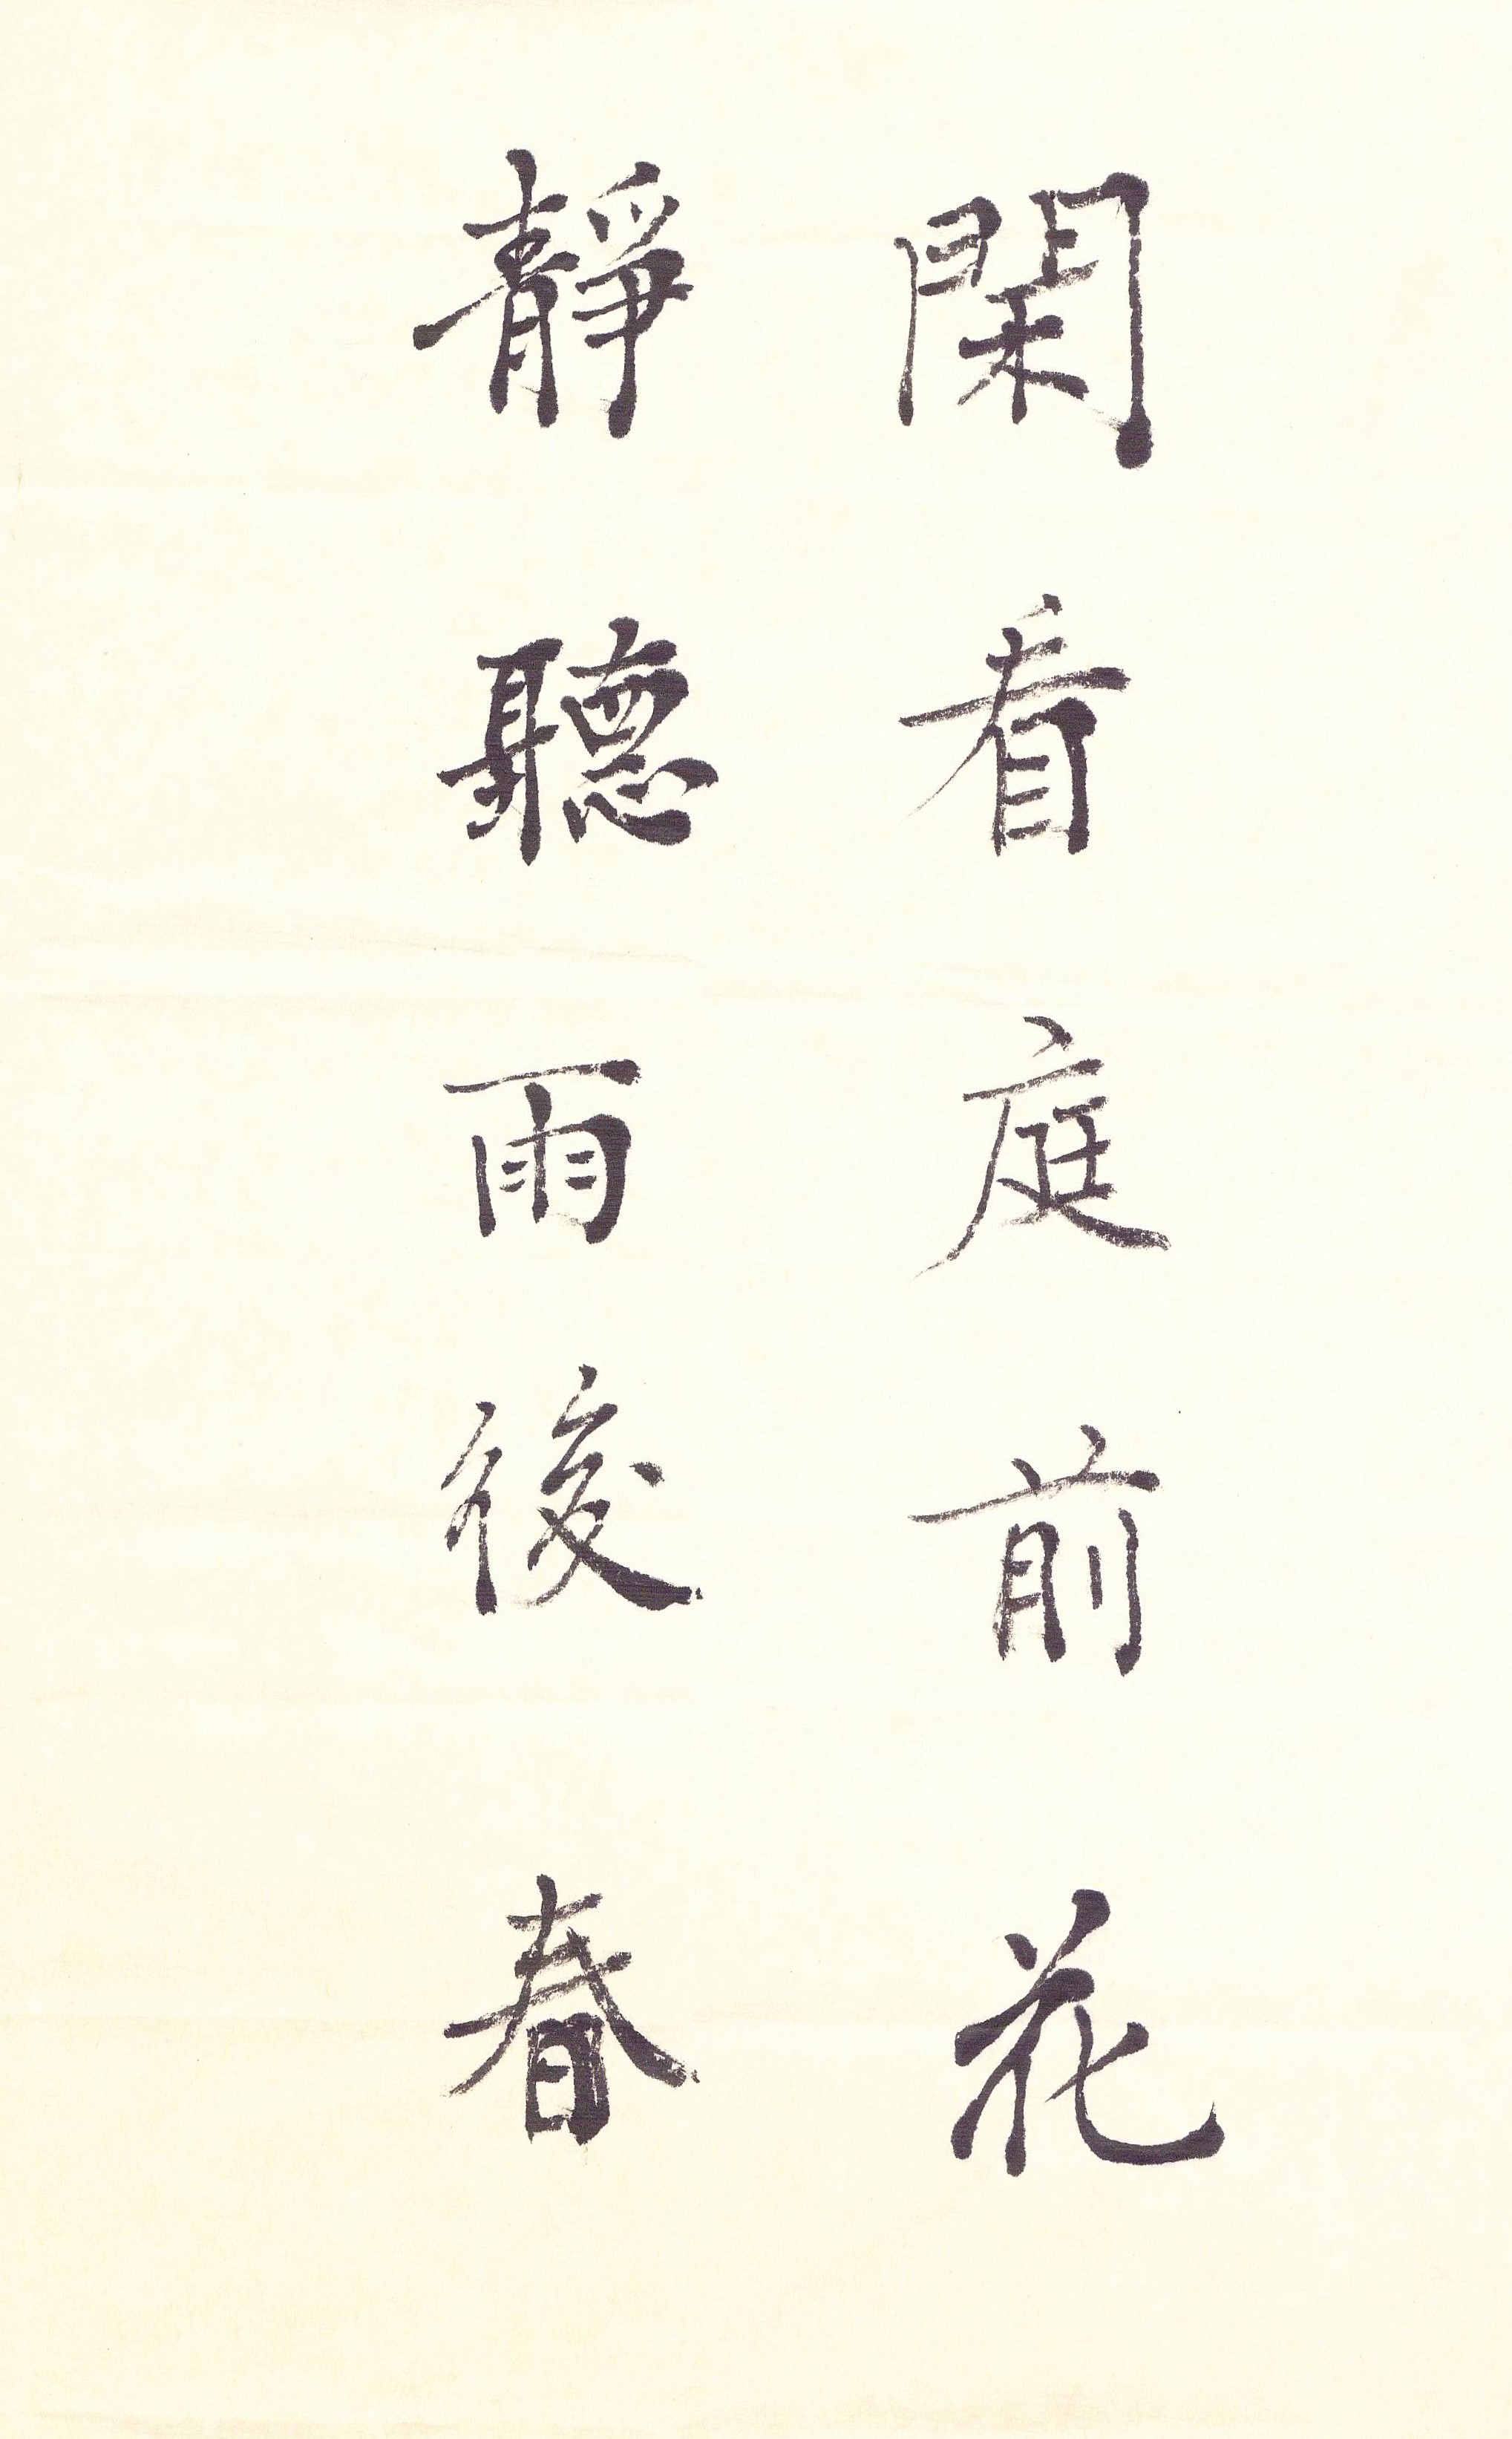 閑看庭前花
靜聽雨後春